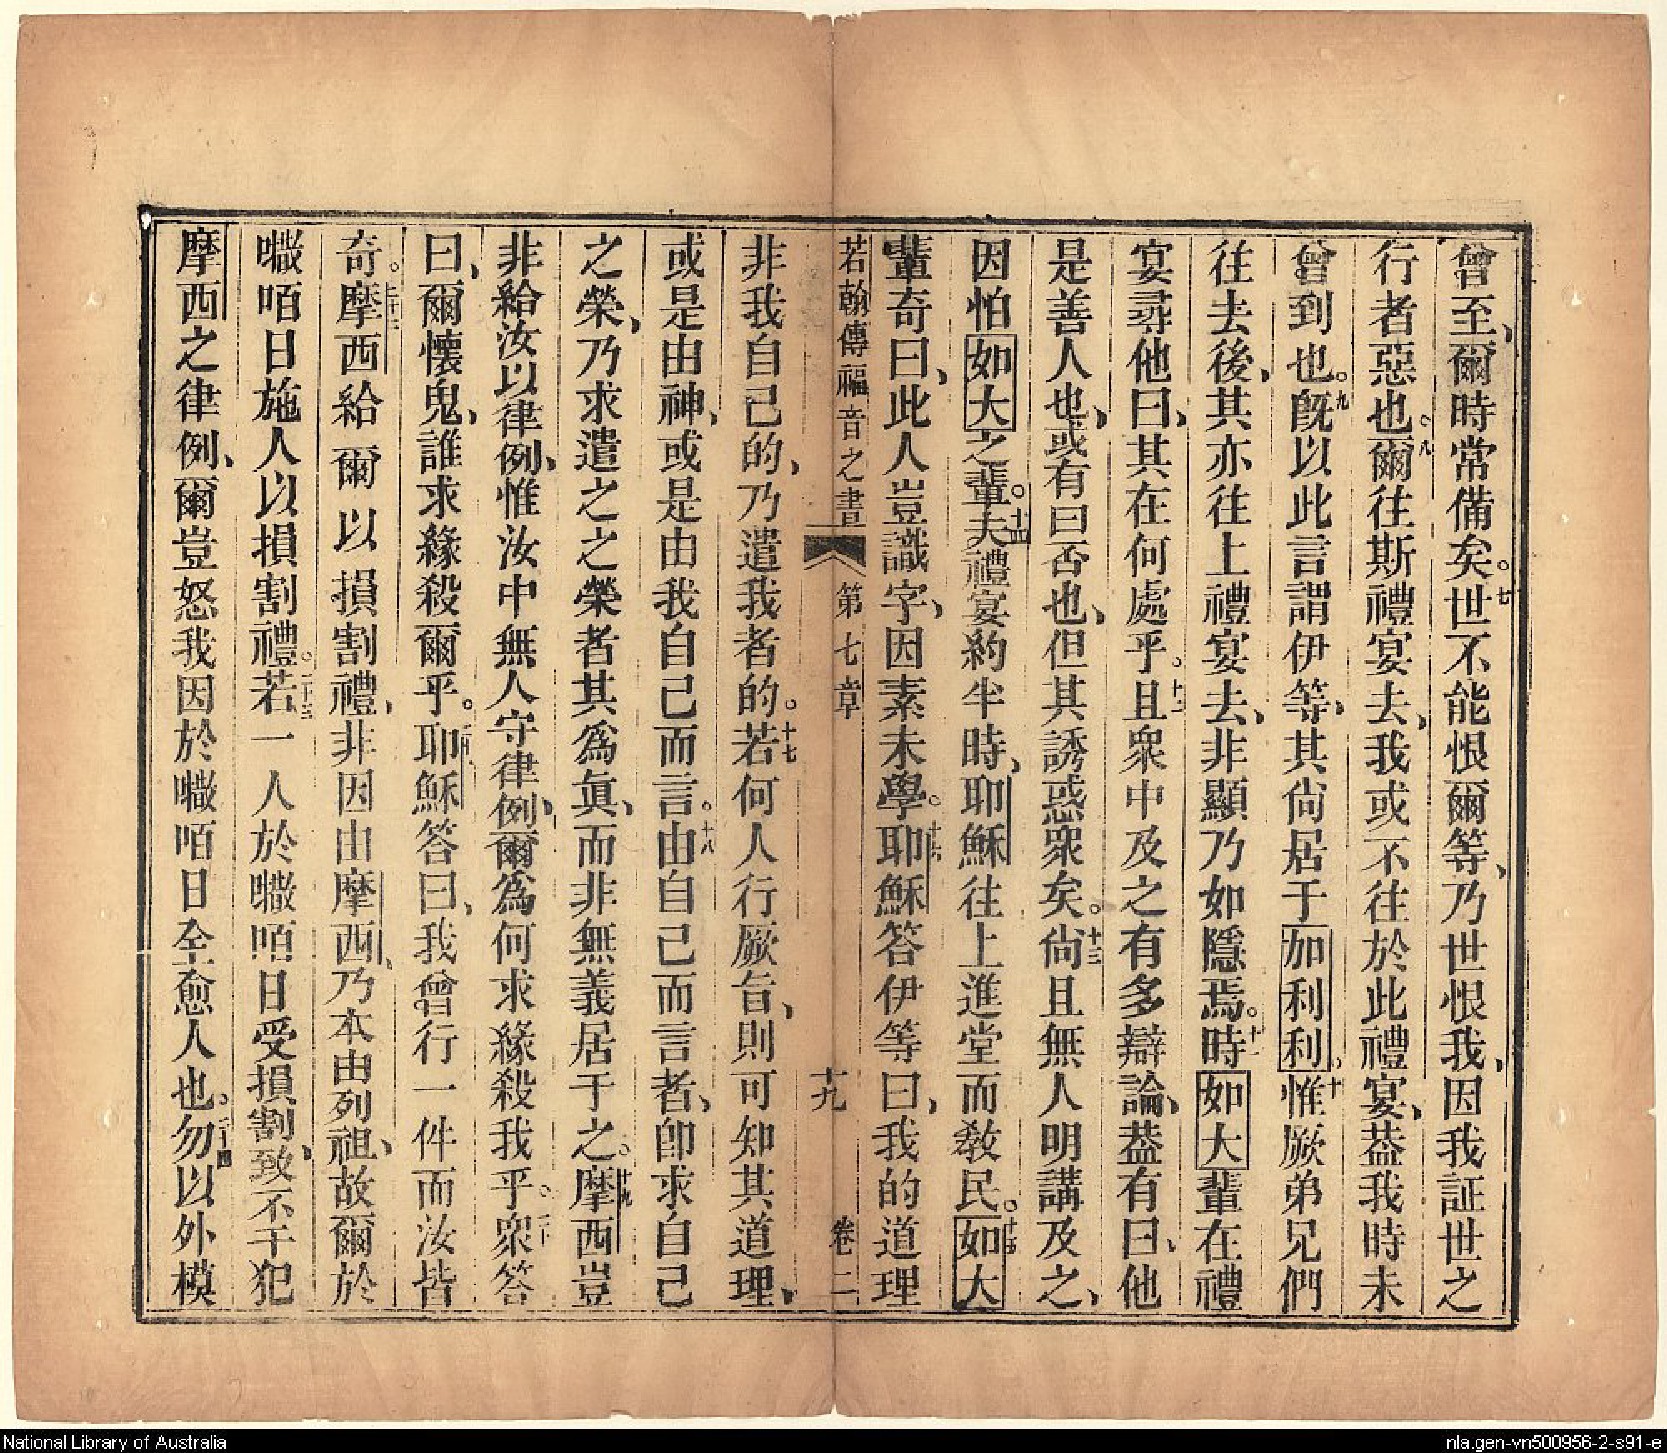 曾至、爾時常備矣。七世不能恨爾等、乃世恨我、因我証世之
行者惡也。八爾往斯禮宴去、我或不往於此禮宴、葢我時未
曾到也。九旣以此言謂伊等、其尙居于加利利。十惟厥弟兄們
往去後、其亦往上禮宴去、非顯乃如隱焉。十一時如大輩在禮
宴尋他曰、其在何處乎。十二且眾中及之有多辯論、葢有曰、他
是善人也、或有曰否也、但其誘惑眾矣。十三尙且無人明講及之、
因怕如大之輩。十四夫禮宴約半時、耶穌往上進堂而敎民。十五如大
輩奇曰、此人豈識字、因素未學。十六耶穌答伊等曰、我的道理
若翰傳福音之書 第七章 十九 卷二
非我自己的、乃遣我者的。十七若何人行厥旨、則可知其道理、
或是由神、或是由我自己而言。十八由自己而言者、卽求自己
之榮、乃求遣之之榮者其爲眞、而非無義居于之。十九摩西豈
非給汝以律例、惟汝中無人守律例、爾爲何求緣殺我乎。二十眾答
曰、爾懷鬼、誰求緣殺爾乎。二十一耶穌答曰、我曾行一件而汝皆
奇。二十二摩西給爾以損割禮、非因由摩西、乃本由列祖、故爾於
𠹌咟日施人以損割禮。二十三若一人於𠹌咟日受損割、致不干犯
摩西之律例、爾豈怒我因於𠹌咟日全愈人也。二十四勿以外模
National Library of Australia
nla.gen-vn500956-2-s91-e